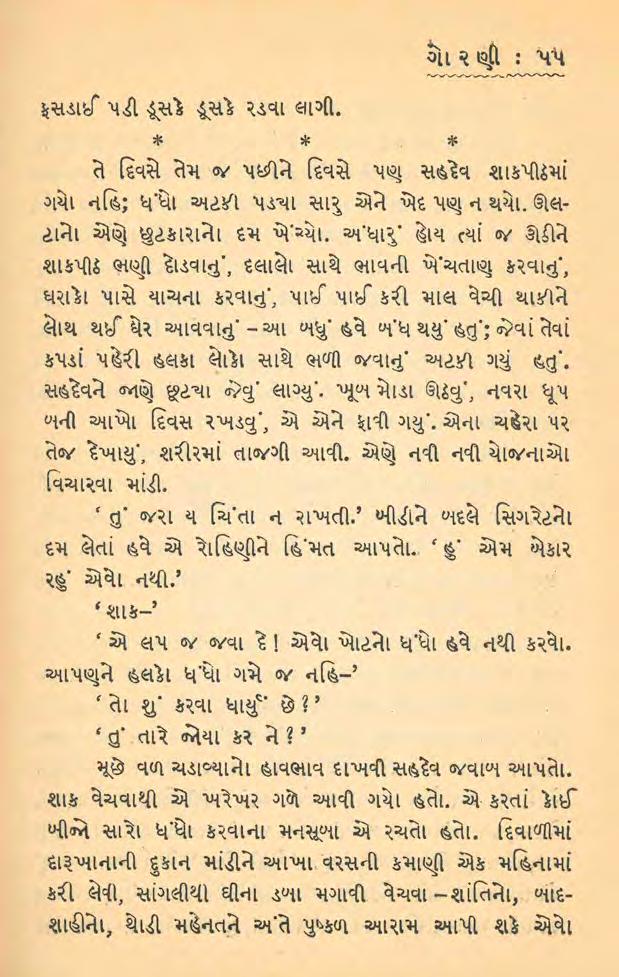 ગોરણી : ૫૫
ફસડાઈ પડી ડૂસકે ડૂસકે રડવા લાગી.
* * *
તે દિવસે તેમ જ પછીને દિવસે પણ સહદેવ શાકપીઠમાં
ગયો નહિ; ધંધો અટકી પડ્યા સારુ એને ખેદ પણ ન થયો. ઊલ-
ટાનો એણે છુટકારાનો દમ ખેંચ્યો. અંધારું હોય ત્યાં જ ઊઠીને
શાકપીઠ ભણી દોડવાનું, દલાલો સાથે ભાવની ખેંચતાણ કરવાનું,
ઘરાકો પાસે યાચના કરવાનું, પાઈ પાઈ કરી માલ વેચી થાકીને
લોથ થઈ ઘેર આવવાનું – આ બધું હવે બંધ થયું હતું; જેવાં તેવાં
કપડાં પહેરી હલકા લોકો સાથે ભળી જવાનું અટકી ગયું હતું.
સહદેવને જાણે છૂટ્યા જેવું લાગ્યું. ખૂબ મોડા ઊઠવું, નવરા ધૂપ
બની આખો દિવસ રખડવું, એ એને ફાવી ગયું. એના ચહેરા પર
તેજ દેખાયું, શરીરમાં તાજગી આવી. એણે નવી નવી યોજનાઓ
વિચારવા માંડી.
‘ તું જરા ય ચિંતા ન રાખતી.’ બીડીને બદલે સિગરેટનો
દમ લેતાં હવે એ રોહિણીને હિંમત આપતો. ‘ હું એમ બેકાર
રહું એવો નથી.’
‘ શાક–’
‘ એ લપ જ જવા દે ! એવો ખોટનો ધંધો હવે નથી કરવો.
આપણને હલકો ધંધો ગમે જ નહિ–’
‘ તો શું કરવા ધાર્યું છે ? ’
‘ તું તારે જોયા કર ને ? ’
મૂછે વળ ચડાવ્યાનો હાવભાવ દાખવી સહદેવ જવાબ આપતો.
શાક વેચવાથી એ ખરેખર ગળે આવી ગયો હતો. એ કરતાં કોઈ
બીજો સારો ધંધો કરવાના મનસૂબા એ રચતો હતો. દિવાળીમાં
દારૂખાનાની દુકાન માંડીને આખા વરસની કમાણી એક મહિનામાં
કરી લેવી, સાંગલીથી ઘીના ડબા મગાવી વેચવા – શાંતિનો, બાદ-
શાહીનો, થોડી મહેનતને અંતે પુષ્કળ આરામ આપી શકે એવો